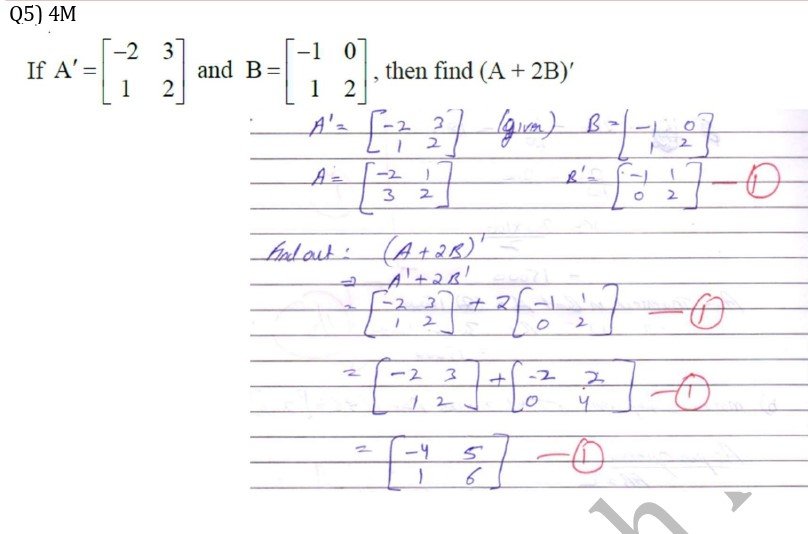 Q5) 4M
If A′ = [−2 3; 1 2] and B = [−1 0; 1 2], then find (A + 2B)′
A' = [-2 3; 1 2] (given) B = [-1 0; 1 2]
A = [-2 1; 3 2] B' = [-1 1; 0 2] — 1
Find out : (A + 2B)'
⇒ A' + 2B'
= [-2 3; 1 2] + 2 [-1 1; 0 2] — 1
= [-2 3; 1 2] + [-2 2; 0 4] — 1
= [-4 5; 1 6] — 1